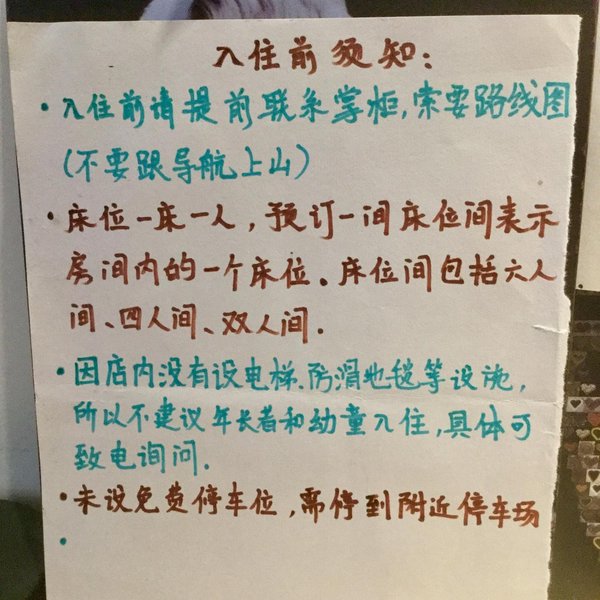 入住前须知:
·入住前请提前联系掌柜,索要路线图
(不要跟导航上山)
·床位一床一人,预订一间床位间表示
房间内的一个床位.床位间包括六人
间、四人间、双人间.
·因店内没有设电梯.防滑地毯等设施,
所以不建议年长者和幼童入住,具体可
致电询问.
·未设免费停车位,需停到附近停车场
·